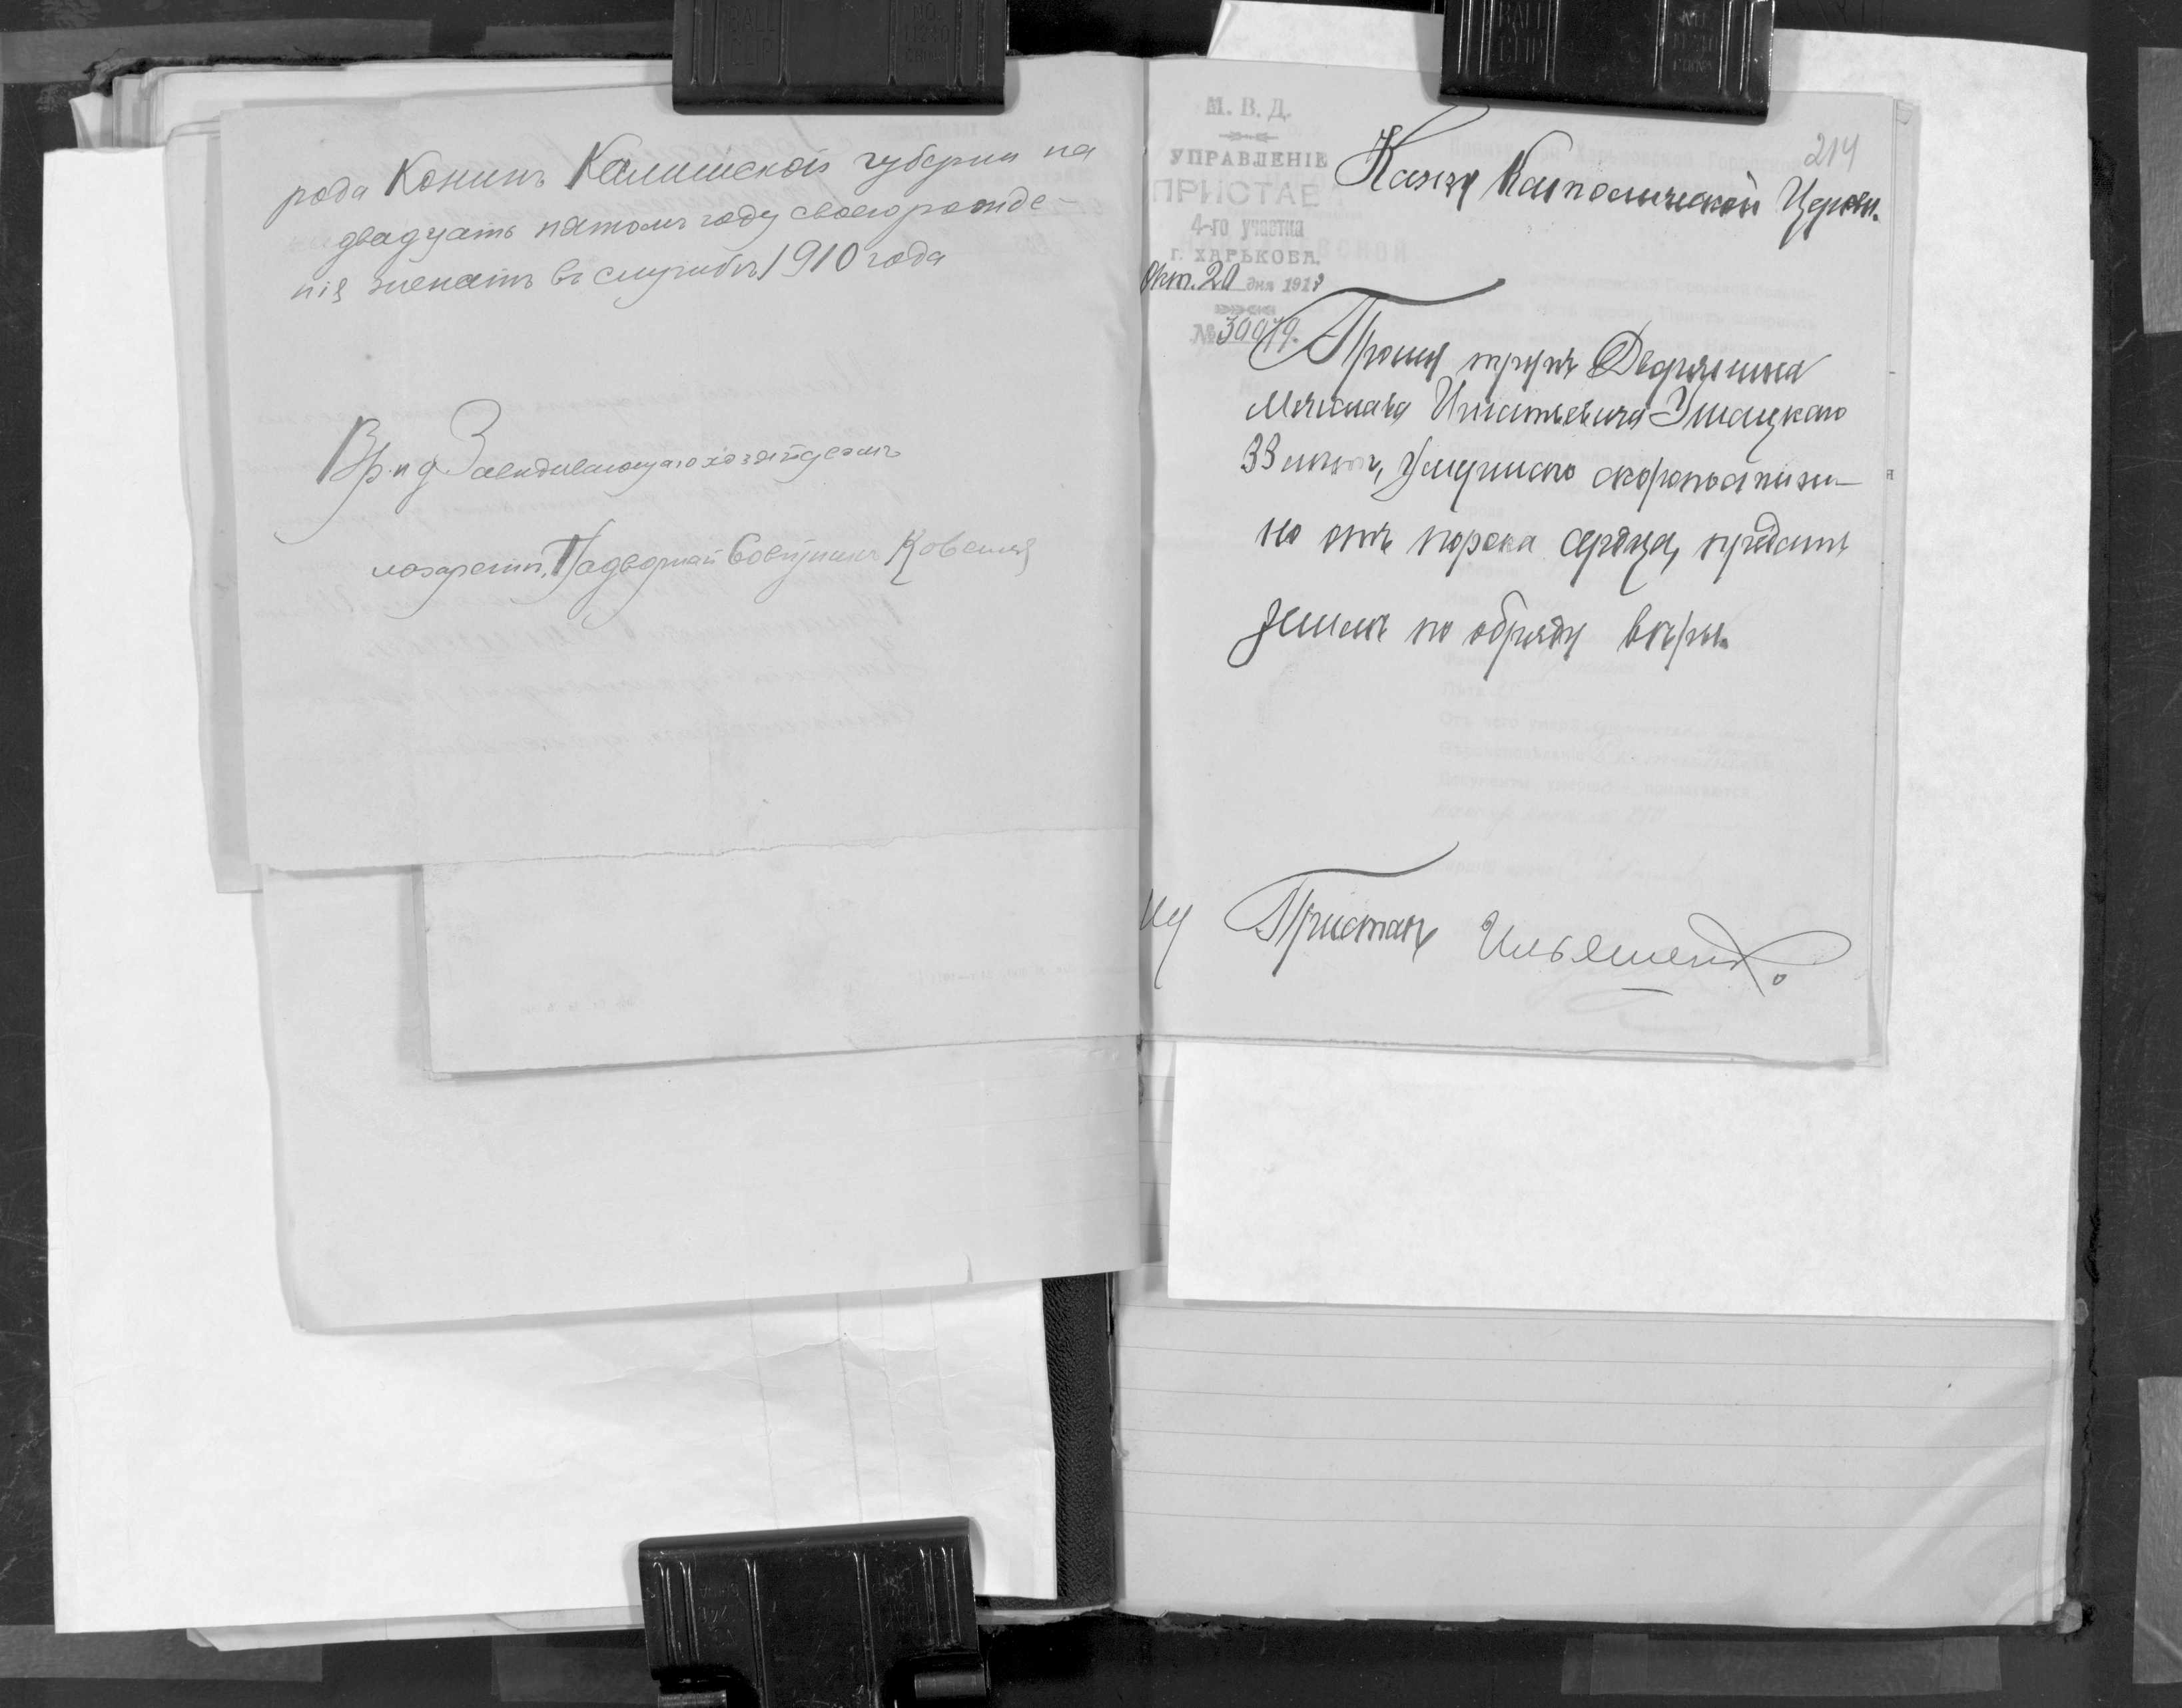 рода Конинъ Калишской губернии на
двадцать пятомъ году своего рожде-
нія женатъ въ службѣ 1910 года
Вр. и д Завѣдывающаго хозяйствомъ
лазарета, Надворный Совѣтникъ
214
М. В. Д.
УПРАВЛЕНІЕ
ПРИСТАВ
4-го участка
г. ХАРЬКОВА.
Окт. 20 дня 191
№
Католической Церкви.
Прошу трупъ Дворянина
Мечислава Игнатьевича
33 лѣтъ, умершаго скоропостижн-
но отъ порока сердца, предать
землѣ по обряду вѣры.
Приставъ Ильяшенко